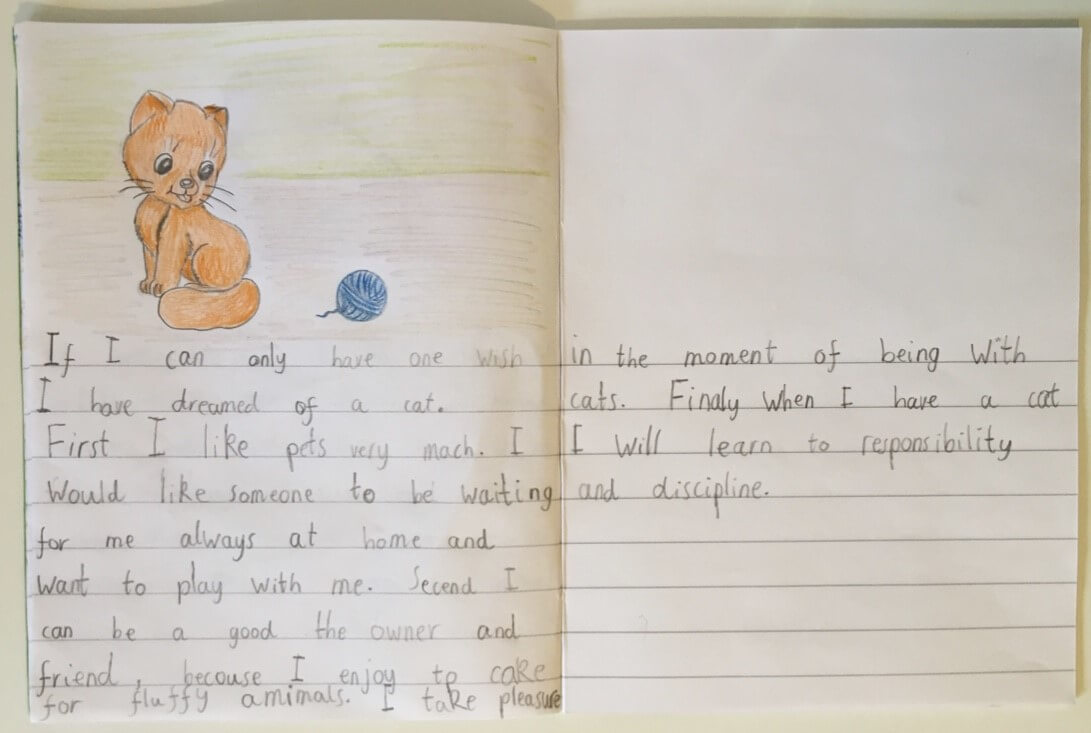 If I can only have one wish
I have dreamed of a cat.
First I like pets very mach. I
Would like someone to be waiting
for me always at home and
want to play with me. Secend I
can be a good the owner and
friend, becouse I enjoy to cake
for fluffy amimals. I take pleasure
in the moment of being With
cats. Finaly when I have a cat
I Will learn to responsibility
and discipline.